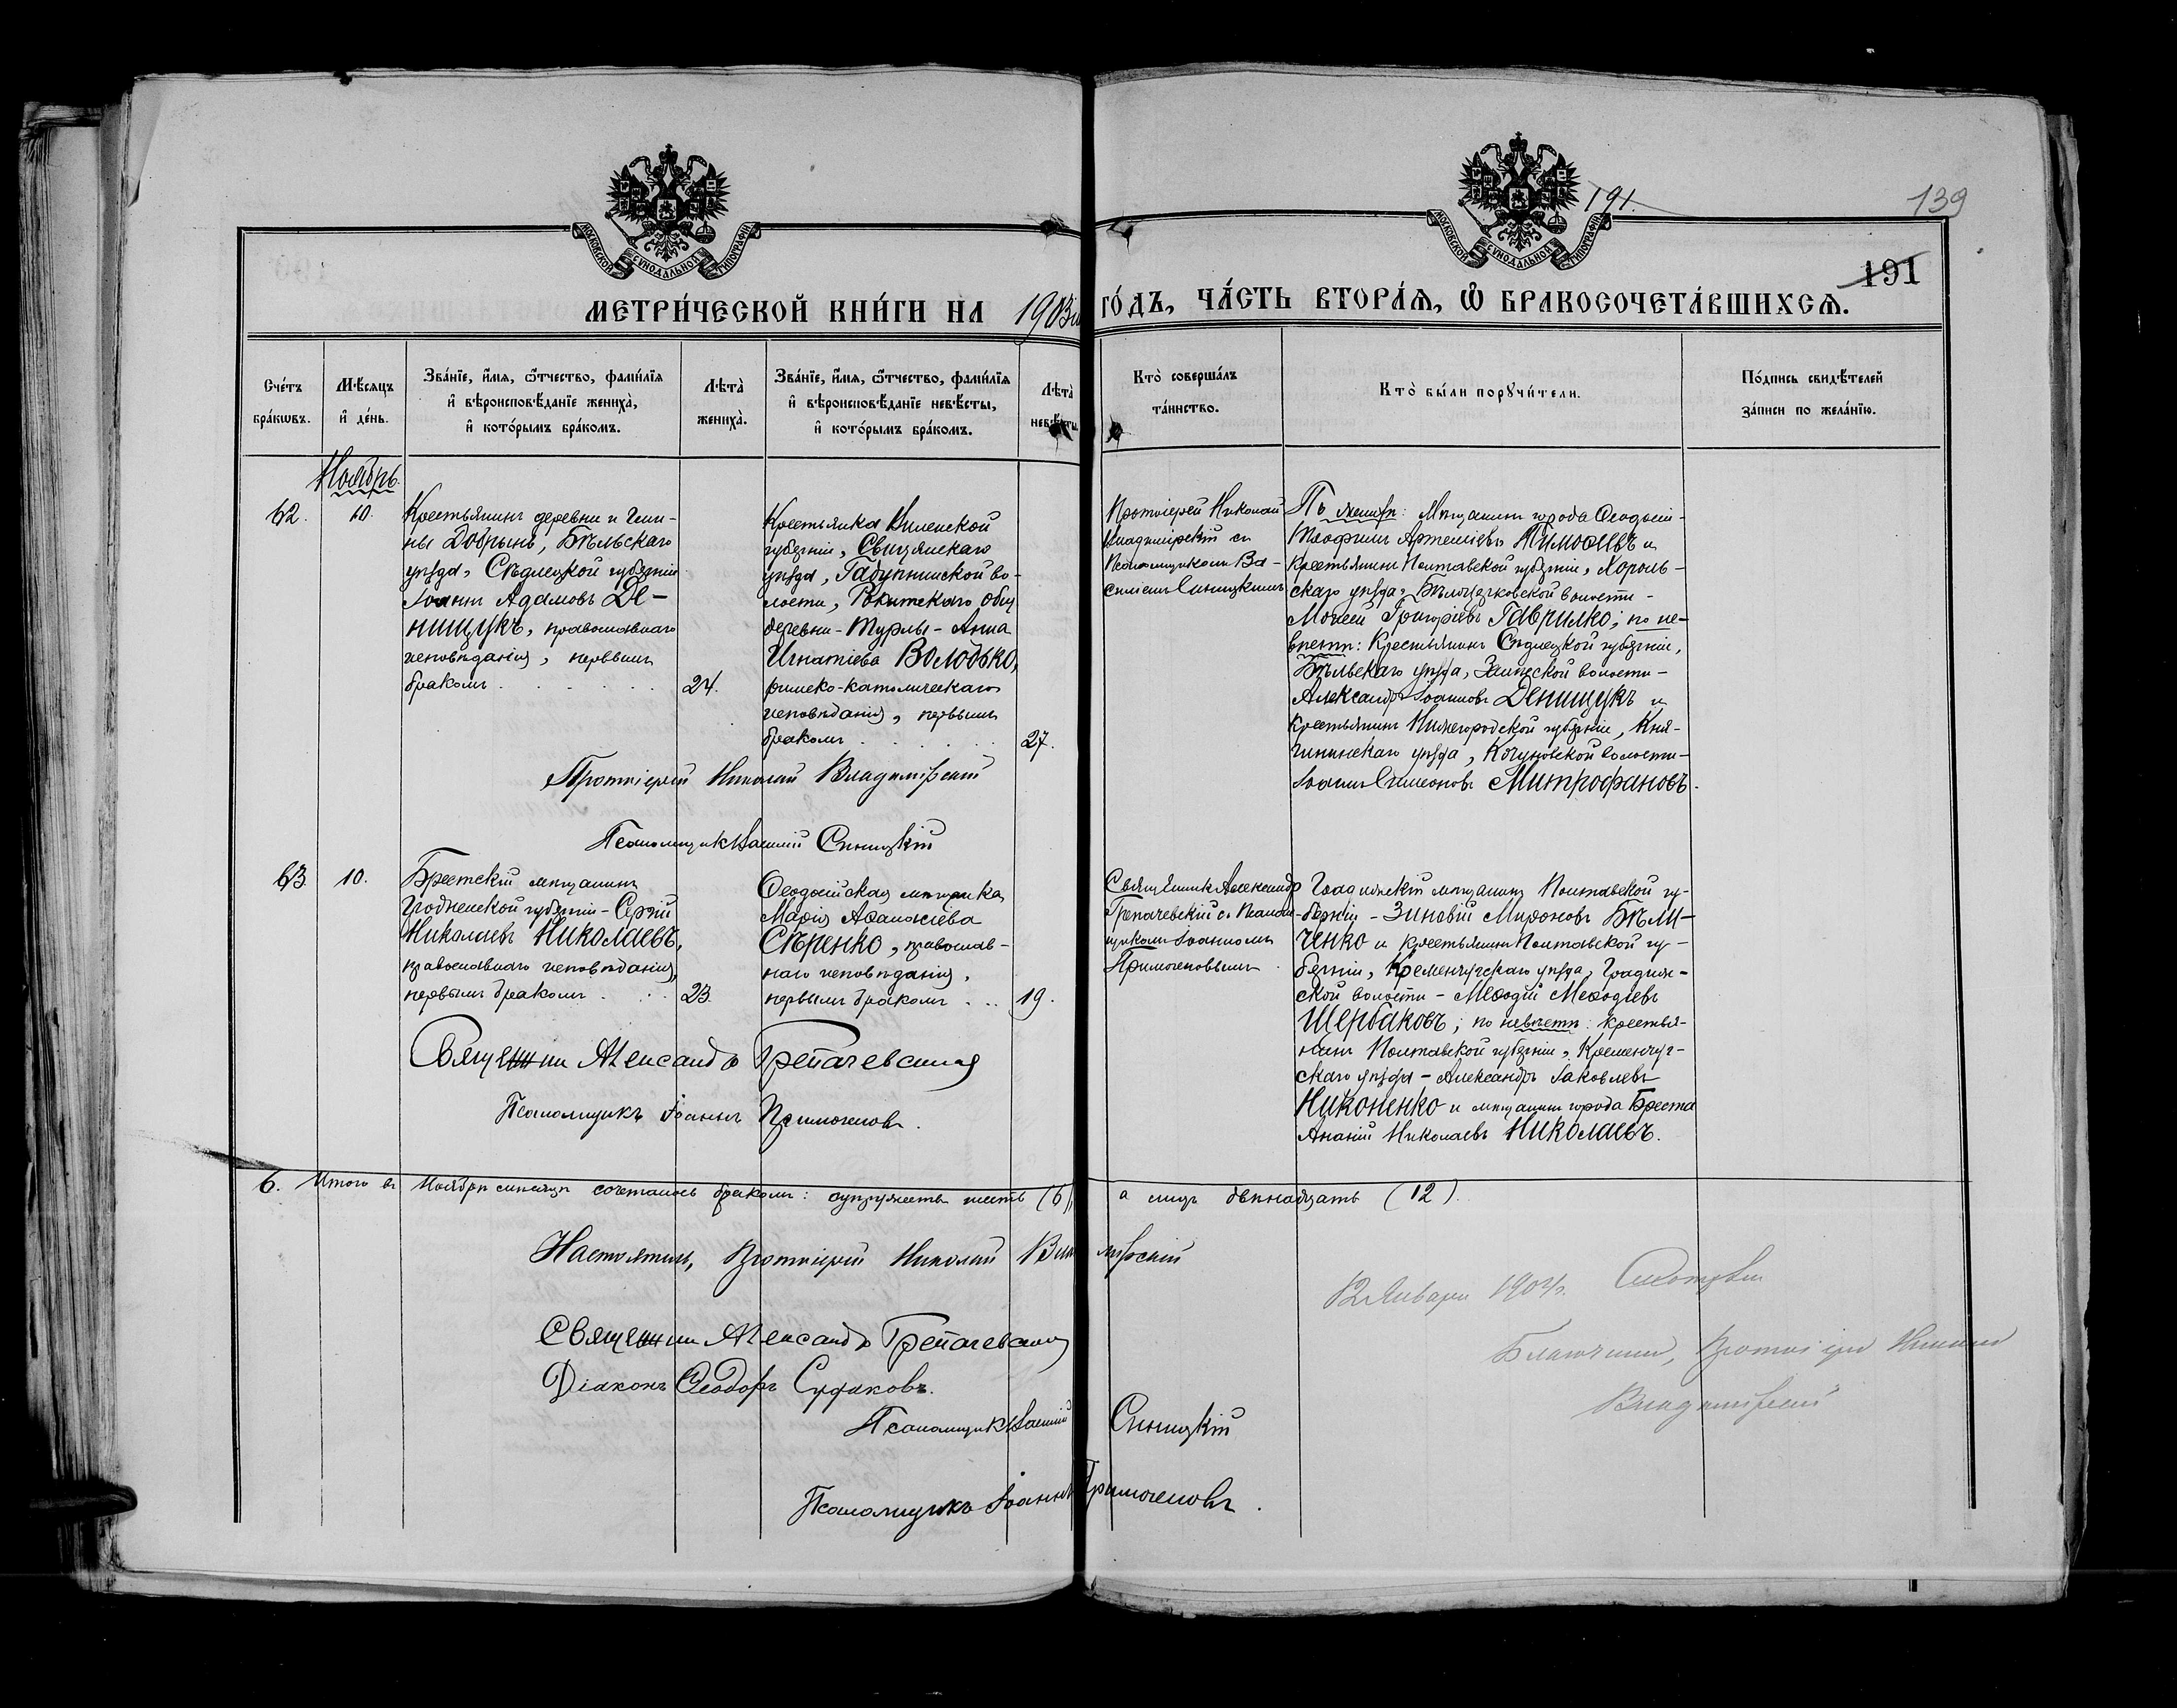 191.
139
191
МОСКОВСКОЙ СѴНОДАЛЬНОЙ ТИПОГРАФІИ
МОСКОВСКОЙ СѴНОДАЛЬНОЙ ТИПОГРАФІИ
МЕТРИ́ЧЕСКОЙ КНИ́ГИ НА 1903й ГО́ДЪ, ЧА́СТЬ ВТОРА́Я, Ѡ БРАКОСОЧЕТА́ВШИХСЯ.
Сче́тъ бра́кѡвъ.
Мѣ́сяцъ и҆ де́нь.
Зва́нїе, и҆́мя, ѻ҆́тчество, фами́лїя
и҆ вѣроисповѣ́данїе жениха̀,
и҆ кото́рымъ бра́комъ.
Лѣта̀ жениха̀.
Зва́нїе, и҆́мя, ѻ҆́тчество, фами́лїя
и҆ вѣроисповѣ́данїе невѣ́сты,
и҆ кото́рымъ бра́комъ.
Лѣта̀ невѣ́сты
Кто̀ соверша́лъ
та́инство.
Кто̀ бы́ли порꙋчи́тели.
По́дпись свидѣ́телей
за́писи по жела́нїю.
Ноябрь.
62.
10.
Крестьянинъ деревни и гми-
ны Добрынь, Бѣльскаго
уѣзда, Сѣдлецкой губерніи
Іоаннъ Адамовъ Де-
нищукъ, православнаго
исповѣданія, первымъ
бракомъ . . . . . .
24.
Крестьянка Виленской
губерніи, Свенцянскаго
уѣзда, во-
лости, общ.
деревни - Турлы - Анна
Игнатіева Володько,
римско-католическаго
исповѣданія, первымъ
бракомъ . . . . .
27.
Протоіерей Николай
Владимірскій съ
Псаломщикомъ Ва-
силіемъ Синицкимъ
По женихѣ: Мѣщанинъ города Ѳеодосіи -
Теофилъ Артеміевъ Тимоѳеевъ и
крестьянинъ Полтавской губерніи, Хороль-
скаго уѣзда, волости -
Моисей Григоріевъ Гаврилко; по не-
вѣстѣ: Крестьянинъ Сѣдлецкой губерніи,
Бѣльскаго уѣзда, волости -
Александръ Іоанновъ Денищукъ и
крестьянинъ Нижегородской губерніи, Кня-
гининскаго уѣзда, волости -
Іоаннъ Симеоновъ Митрофановъ.
Протоіерей Николай Владимірскій
Псаломщикъ Василій Синицкій
63.
10.
Брестскій мѣщанинъ
Гродненской губерніи - Сергій
Николаевъ Николаевъ,
православнаго исповѣданія,
первымъ бракомъ . . .
23.
Ѳеодосійская мѣщанка
Марія Аѳанасіева
Сѣренко, православ-
наго исповѣданія,
первымъ бракомъ . . .
19.
Священникъ Александръ
Грепачевскій съ Псалом-
щикомъ Іоанномъ
Примогеновымъ
Градижскій мѣщанинъ Полтавской гу-
берніи - Зиновій Мироновъ Бѣли-
ченко и крестьянинъ Полтавской гу-
берніи, Кременчугскаго уѣзда, Градиж-
ской волости - Меѳодій Меѳодіевъ
Щербаковъ; по невѣстѣ: крестья-
нинъ Полтавской губерніи, Кременчуг-
скаго уѣзда - Александръ Іаковлевъ
Никоненко и мѣщанинъ города Бреста
Ананій Николаевъ Николаевъ.
Священник Александр Грепачевский
Псаломщикъ Іоаннъ Примогеновъ.
6. Итого въ Ноябрѣ мѣсяцѣ сочеталось бракомъ: супружествъ шесть (6), а лицъ двѣнадцать (12).
Настоятель, Протоіерей Николай Владимірскій
Священник Александр Грепачевский
Діаконъ Ѳеодоръ Судаковъ.
Псаломщикъ Василій Синицкій
Псаломщикъ Іоаннъ Примогеновъ.
12 Января 1904 г.
Благочинный, Протоіерей Николай
Владимірскій